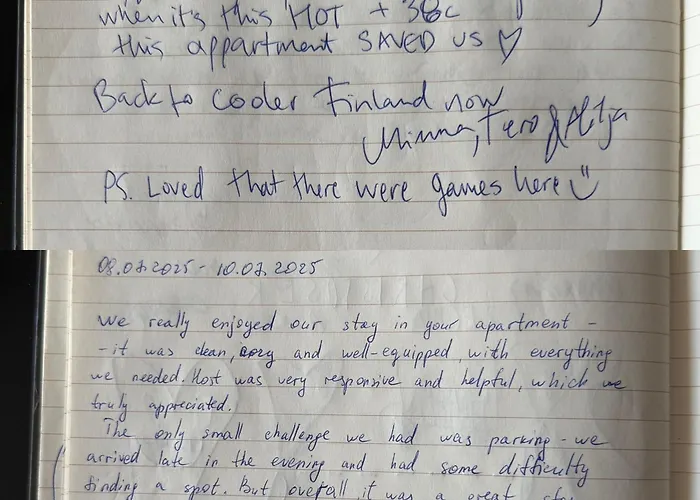 when it's this HOT + 38c
this appartment SAVED US ♡
Back to cooler Finland now
Minna, Tero &
PS. Loved that there were games here :)
08.07.2025 - 10.07.2025
We really enjoyed our stay in your apartment -
- it was clean, cozy and well-equipped, with everything
we needed. Host was very responsive and helpful, which we
truly appreciated.
The only small challenge we had was parking - we
arrived late in the evening and had some difficulty
finding a spot. But overall it was a great